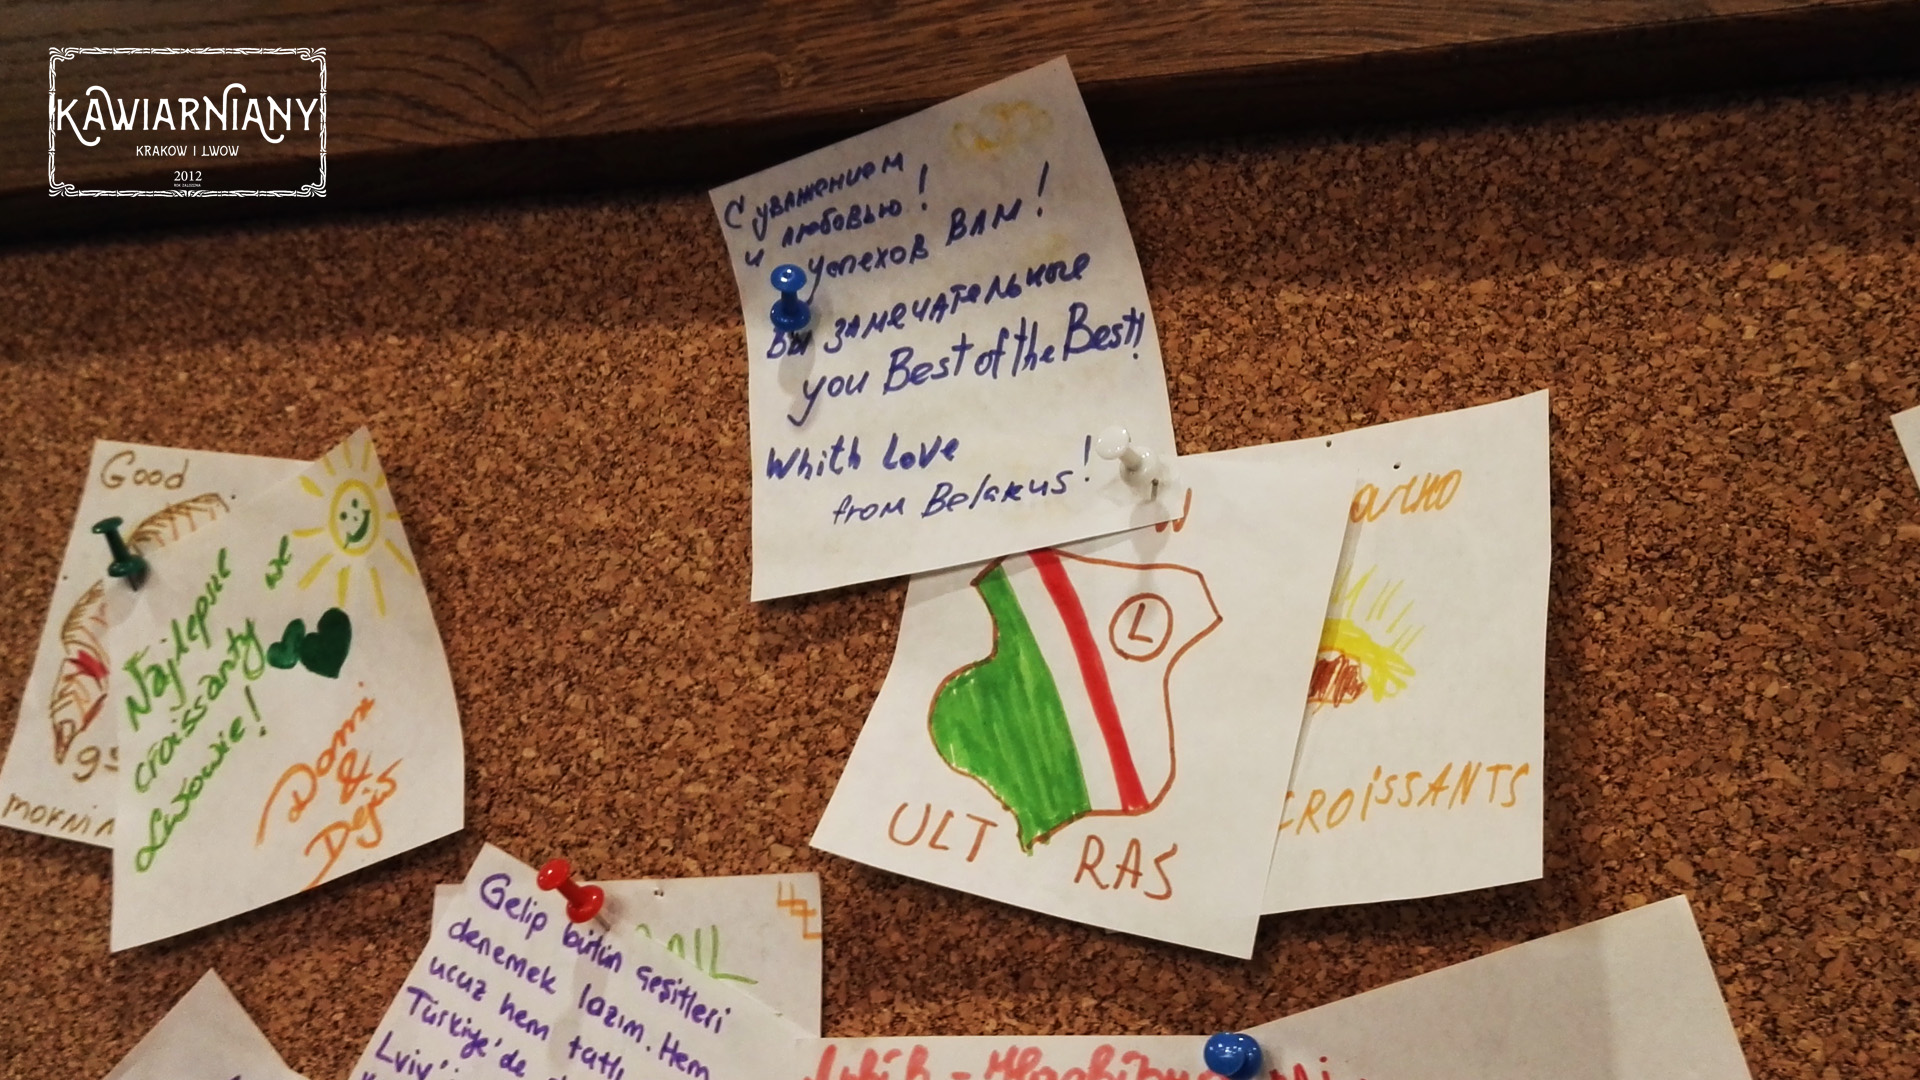 KAWIARNIANY
KRAKOW I LWOW
2012
С уважением
и любовью!
успехов Вам!
Вы замечательные
you Best of the Best!
Whith Love
from Belarus!
Good
mornin
Najlepsie
croissanty we
Lwowie!
Domi
&
Dejis
L
ULT RAS
CROISSANTS
Gelip bütün çeşitleri
denemek lazım. Hem
ucuz hem tatlı
Türkiye'de
Lviv'